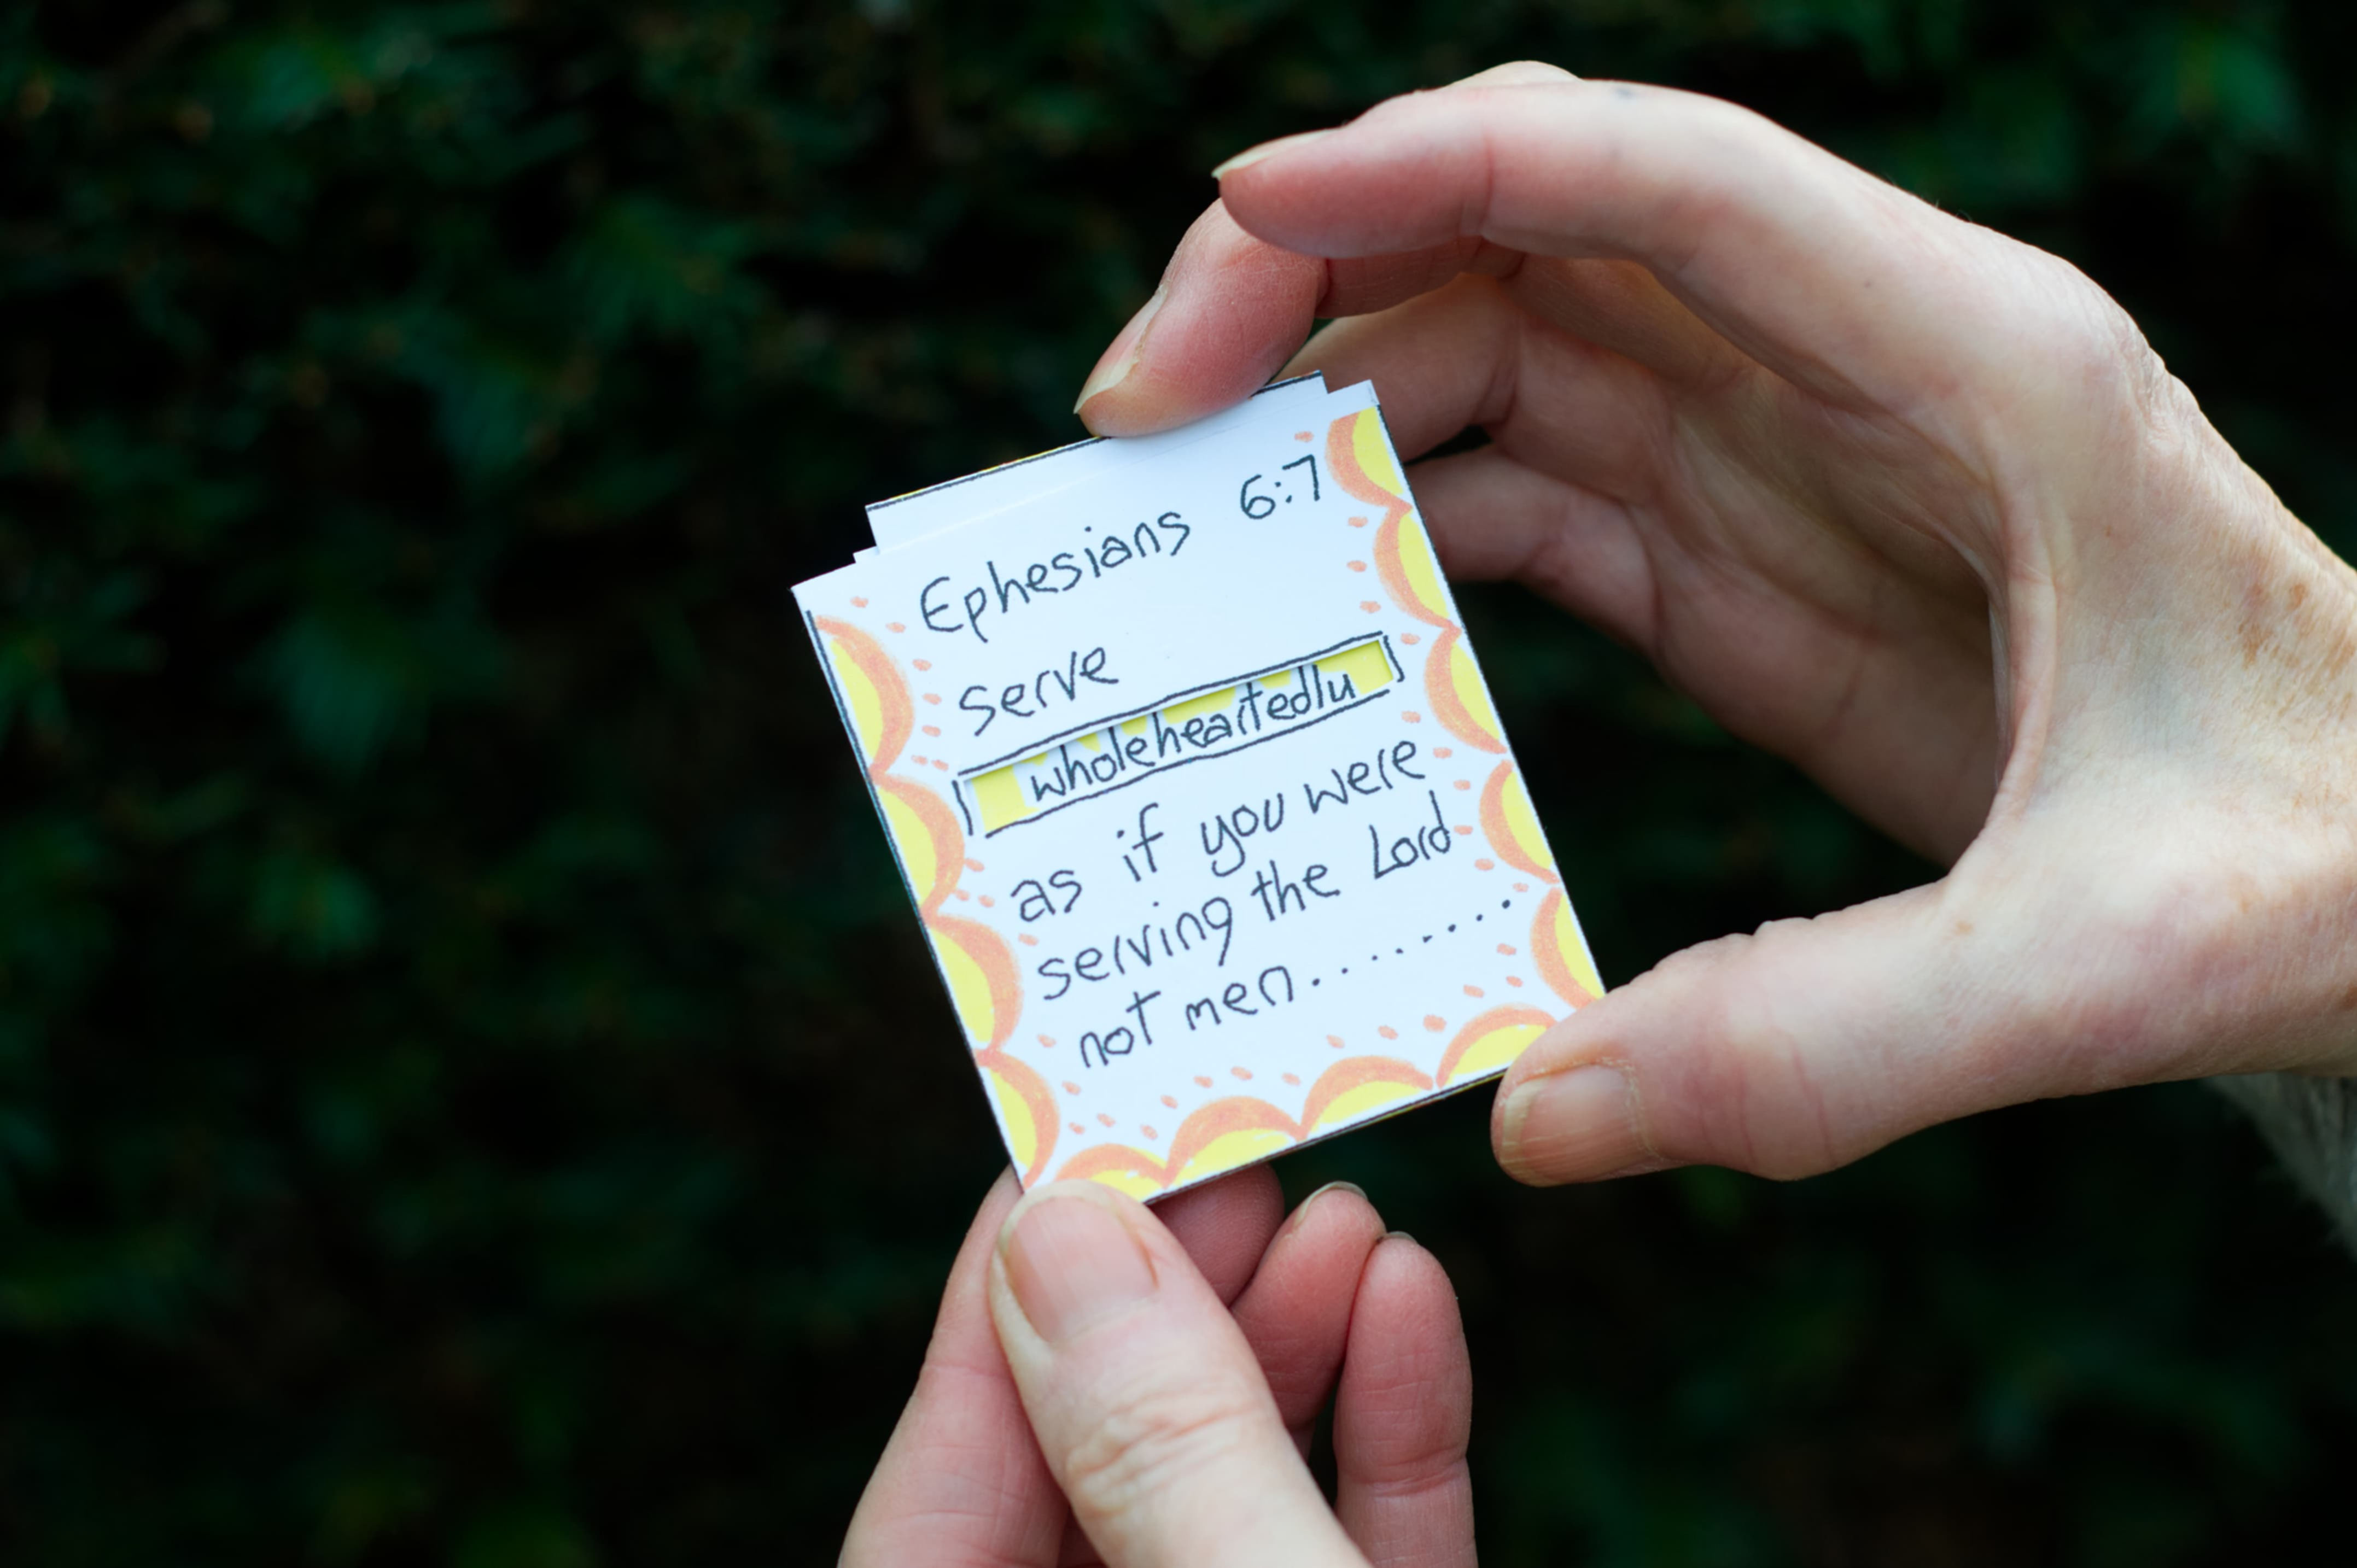 Ephesians 6:7
serve
wholeheartedly
as if you were
serving the Lord
not men.........